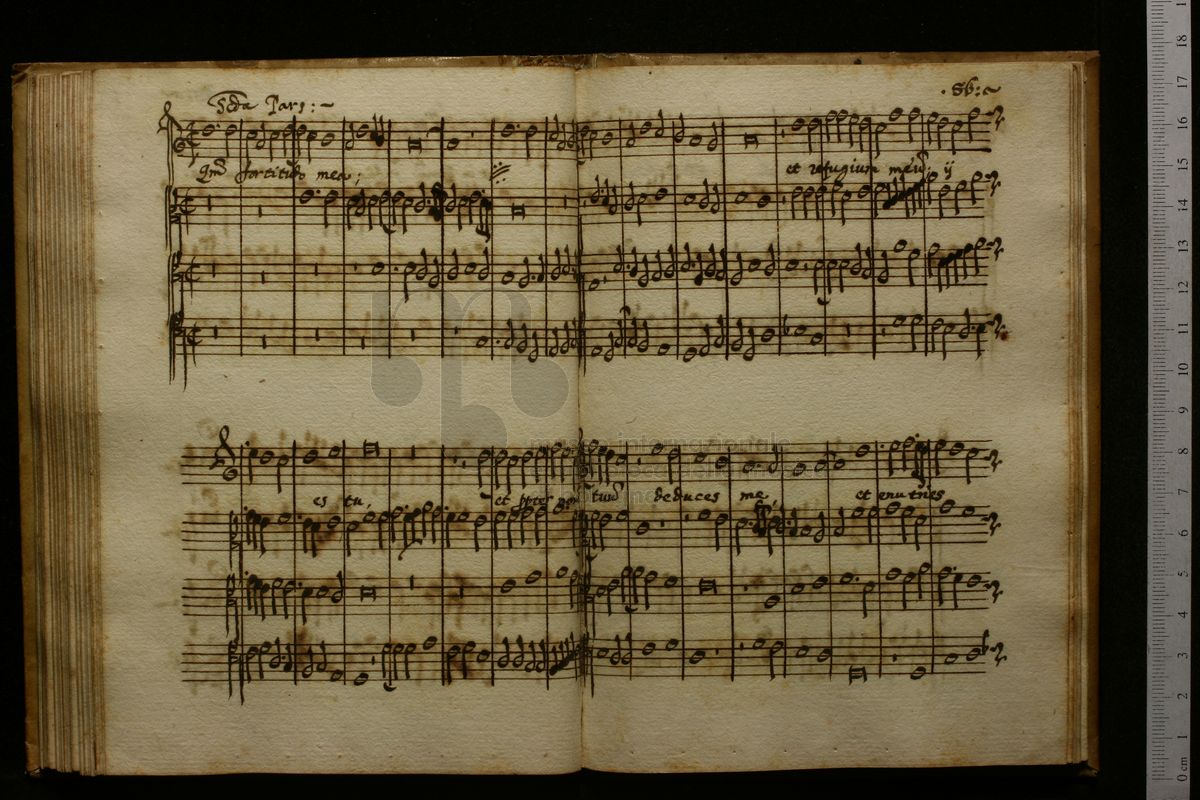 Scda Pars:~
.86:~
Qm̃ fortitudo mea; et refugium meũ ij
museo internazionale
es tu, et ppter nom tuũ deduces me, et enutries
0 cm 1 2 3 4 5 6 7 8 9 10 11 12 13 14 15 16 17 18